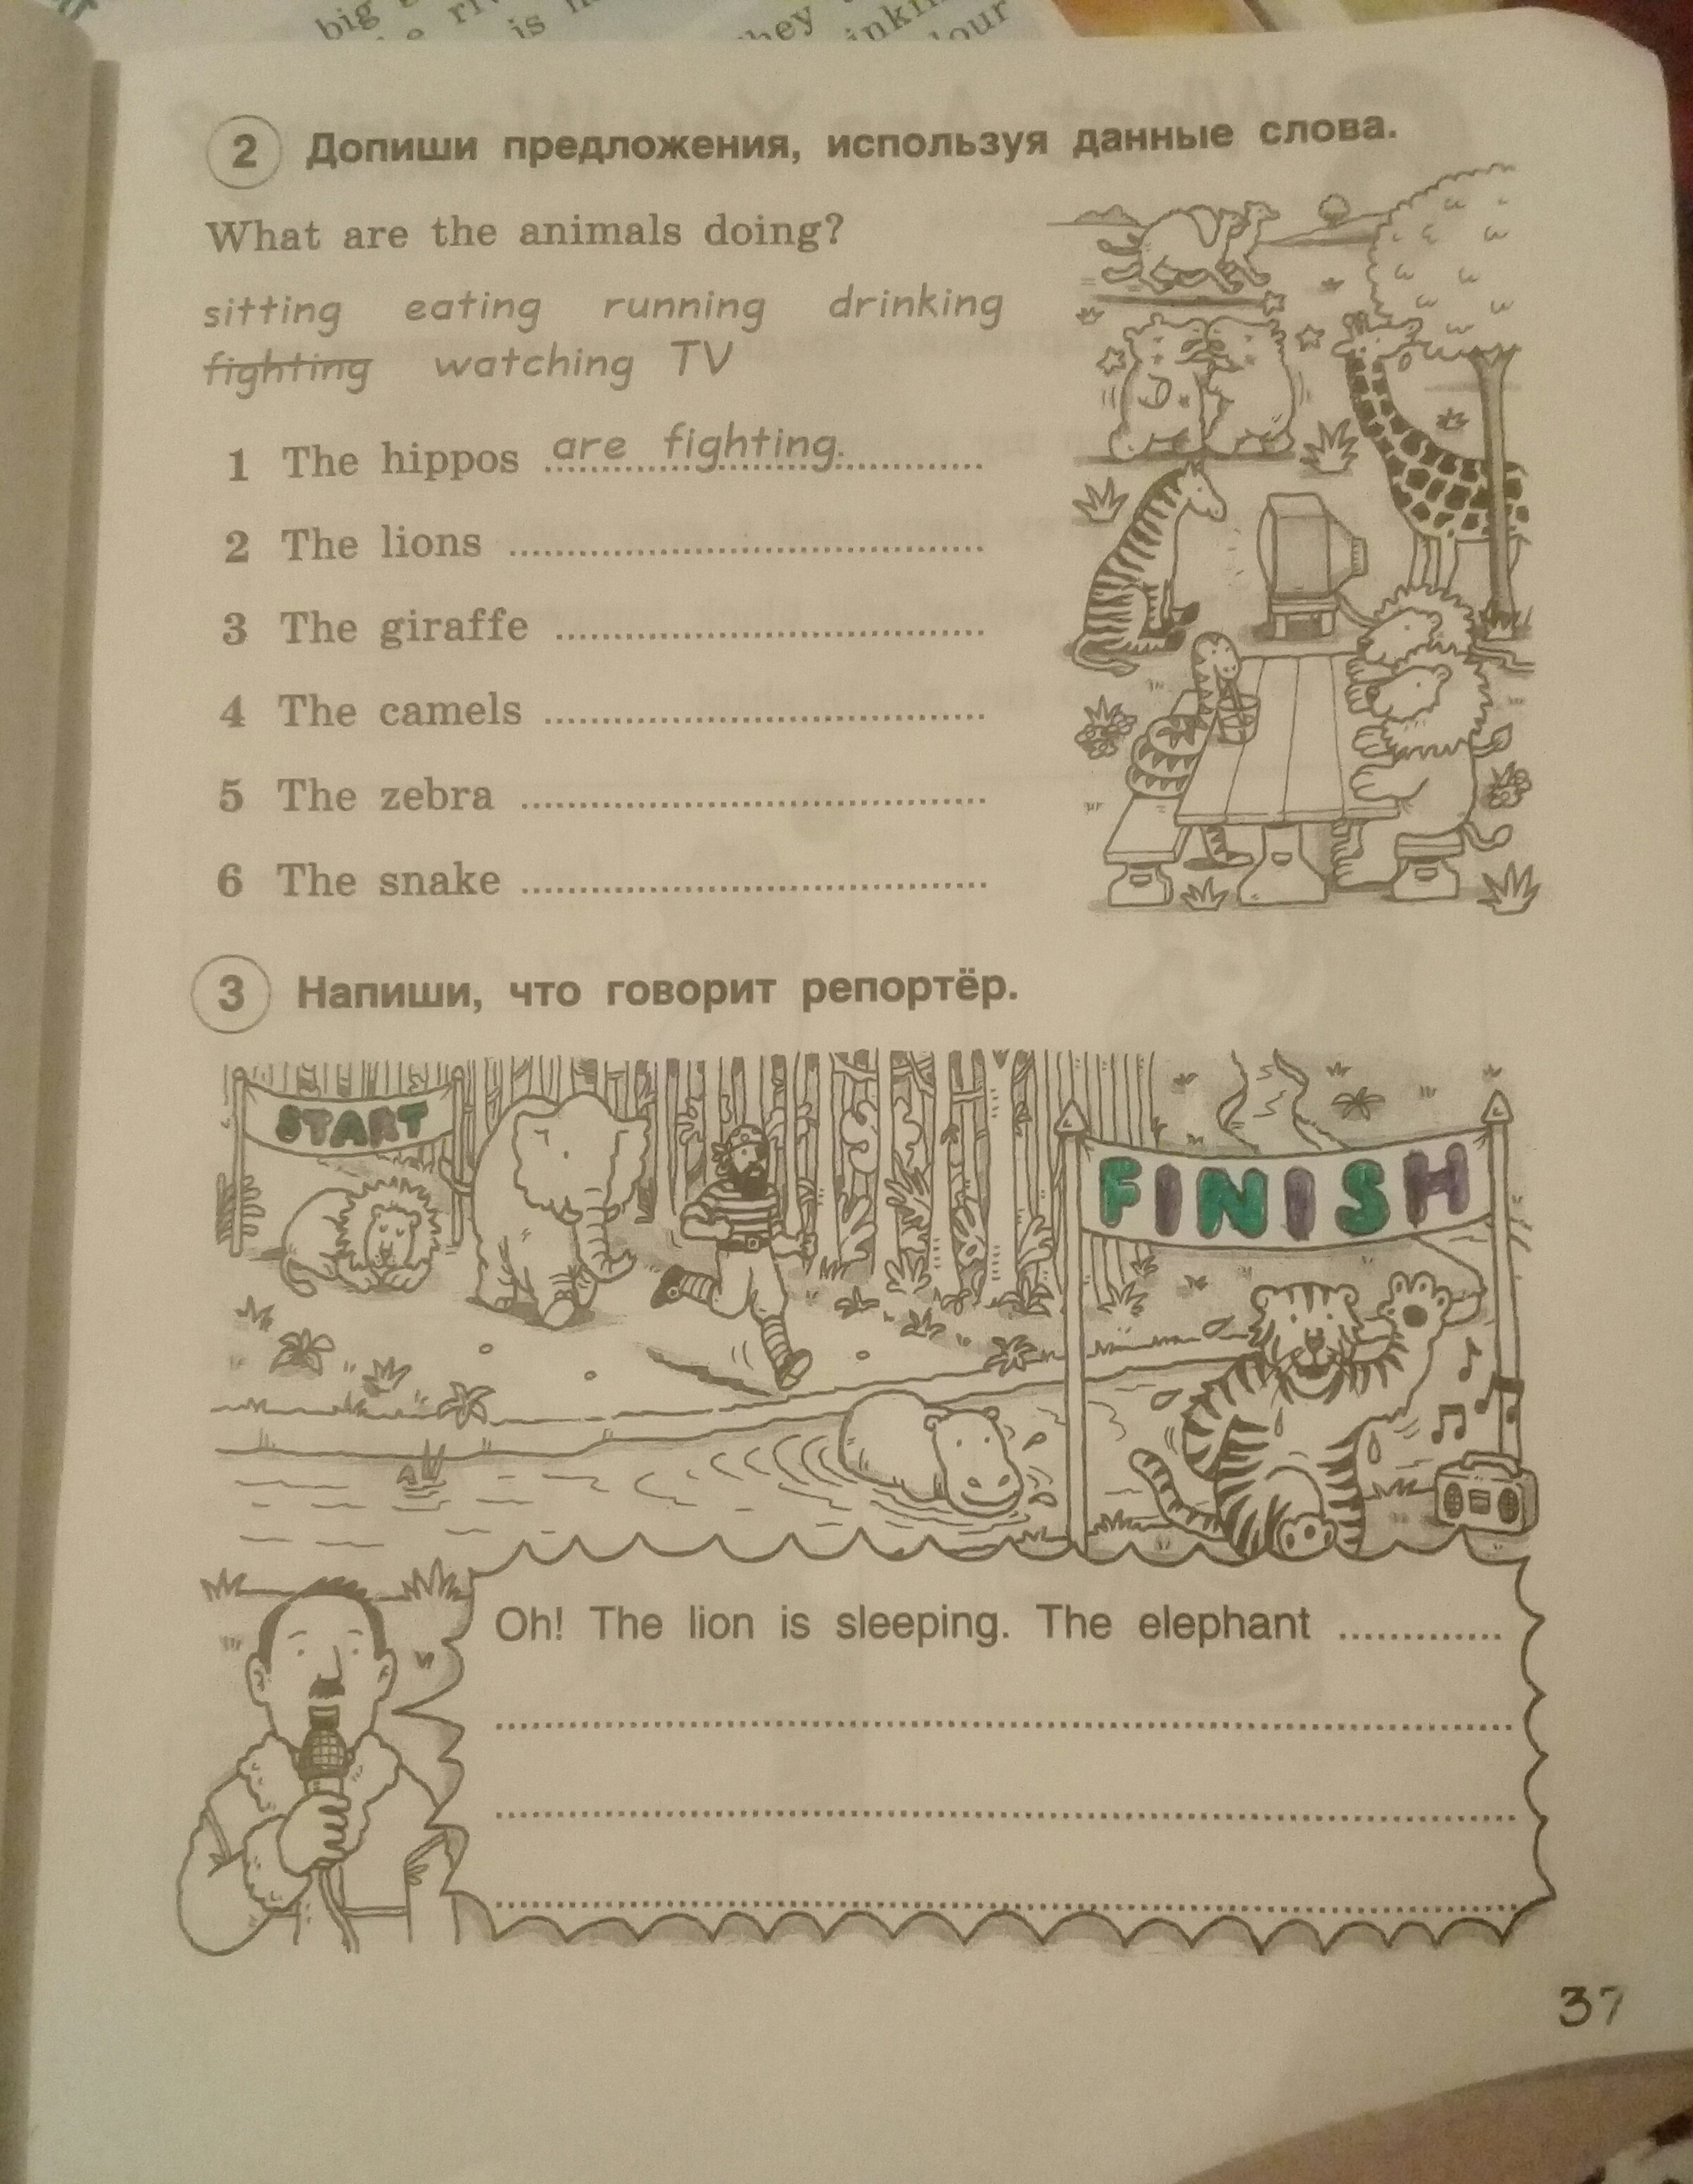 big
is
hey
inkin
lour
2 Допиши предложения, используя данные слова.
What are the animals doing?
sitting eating running drinking
fighting watching TV
1 The hippos are fighting.
2 The lions
3 The giraffe
4 The camels
5 The zebra
6 The snake
3 Напиши, что говорит репортёр.
START
FINISH
Oh! The lion is sleeping. The elephant
37